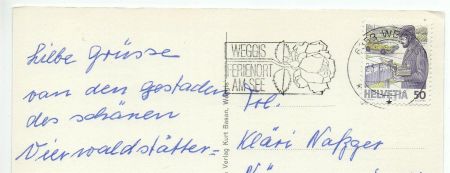 liebe Grüsse
von den Gestaden
des schönen
Vierwaldstätter-
WEGGIS
FERIENORT
AM SEE
HELVETIA 50
Verlag Kurt
Frl.
Kläri Nafzger